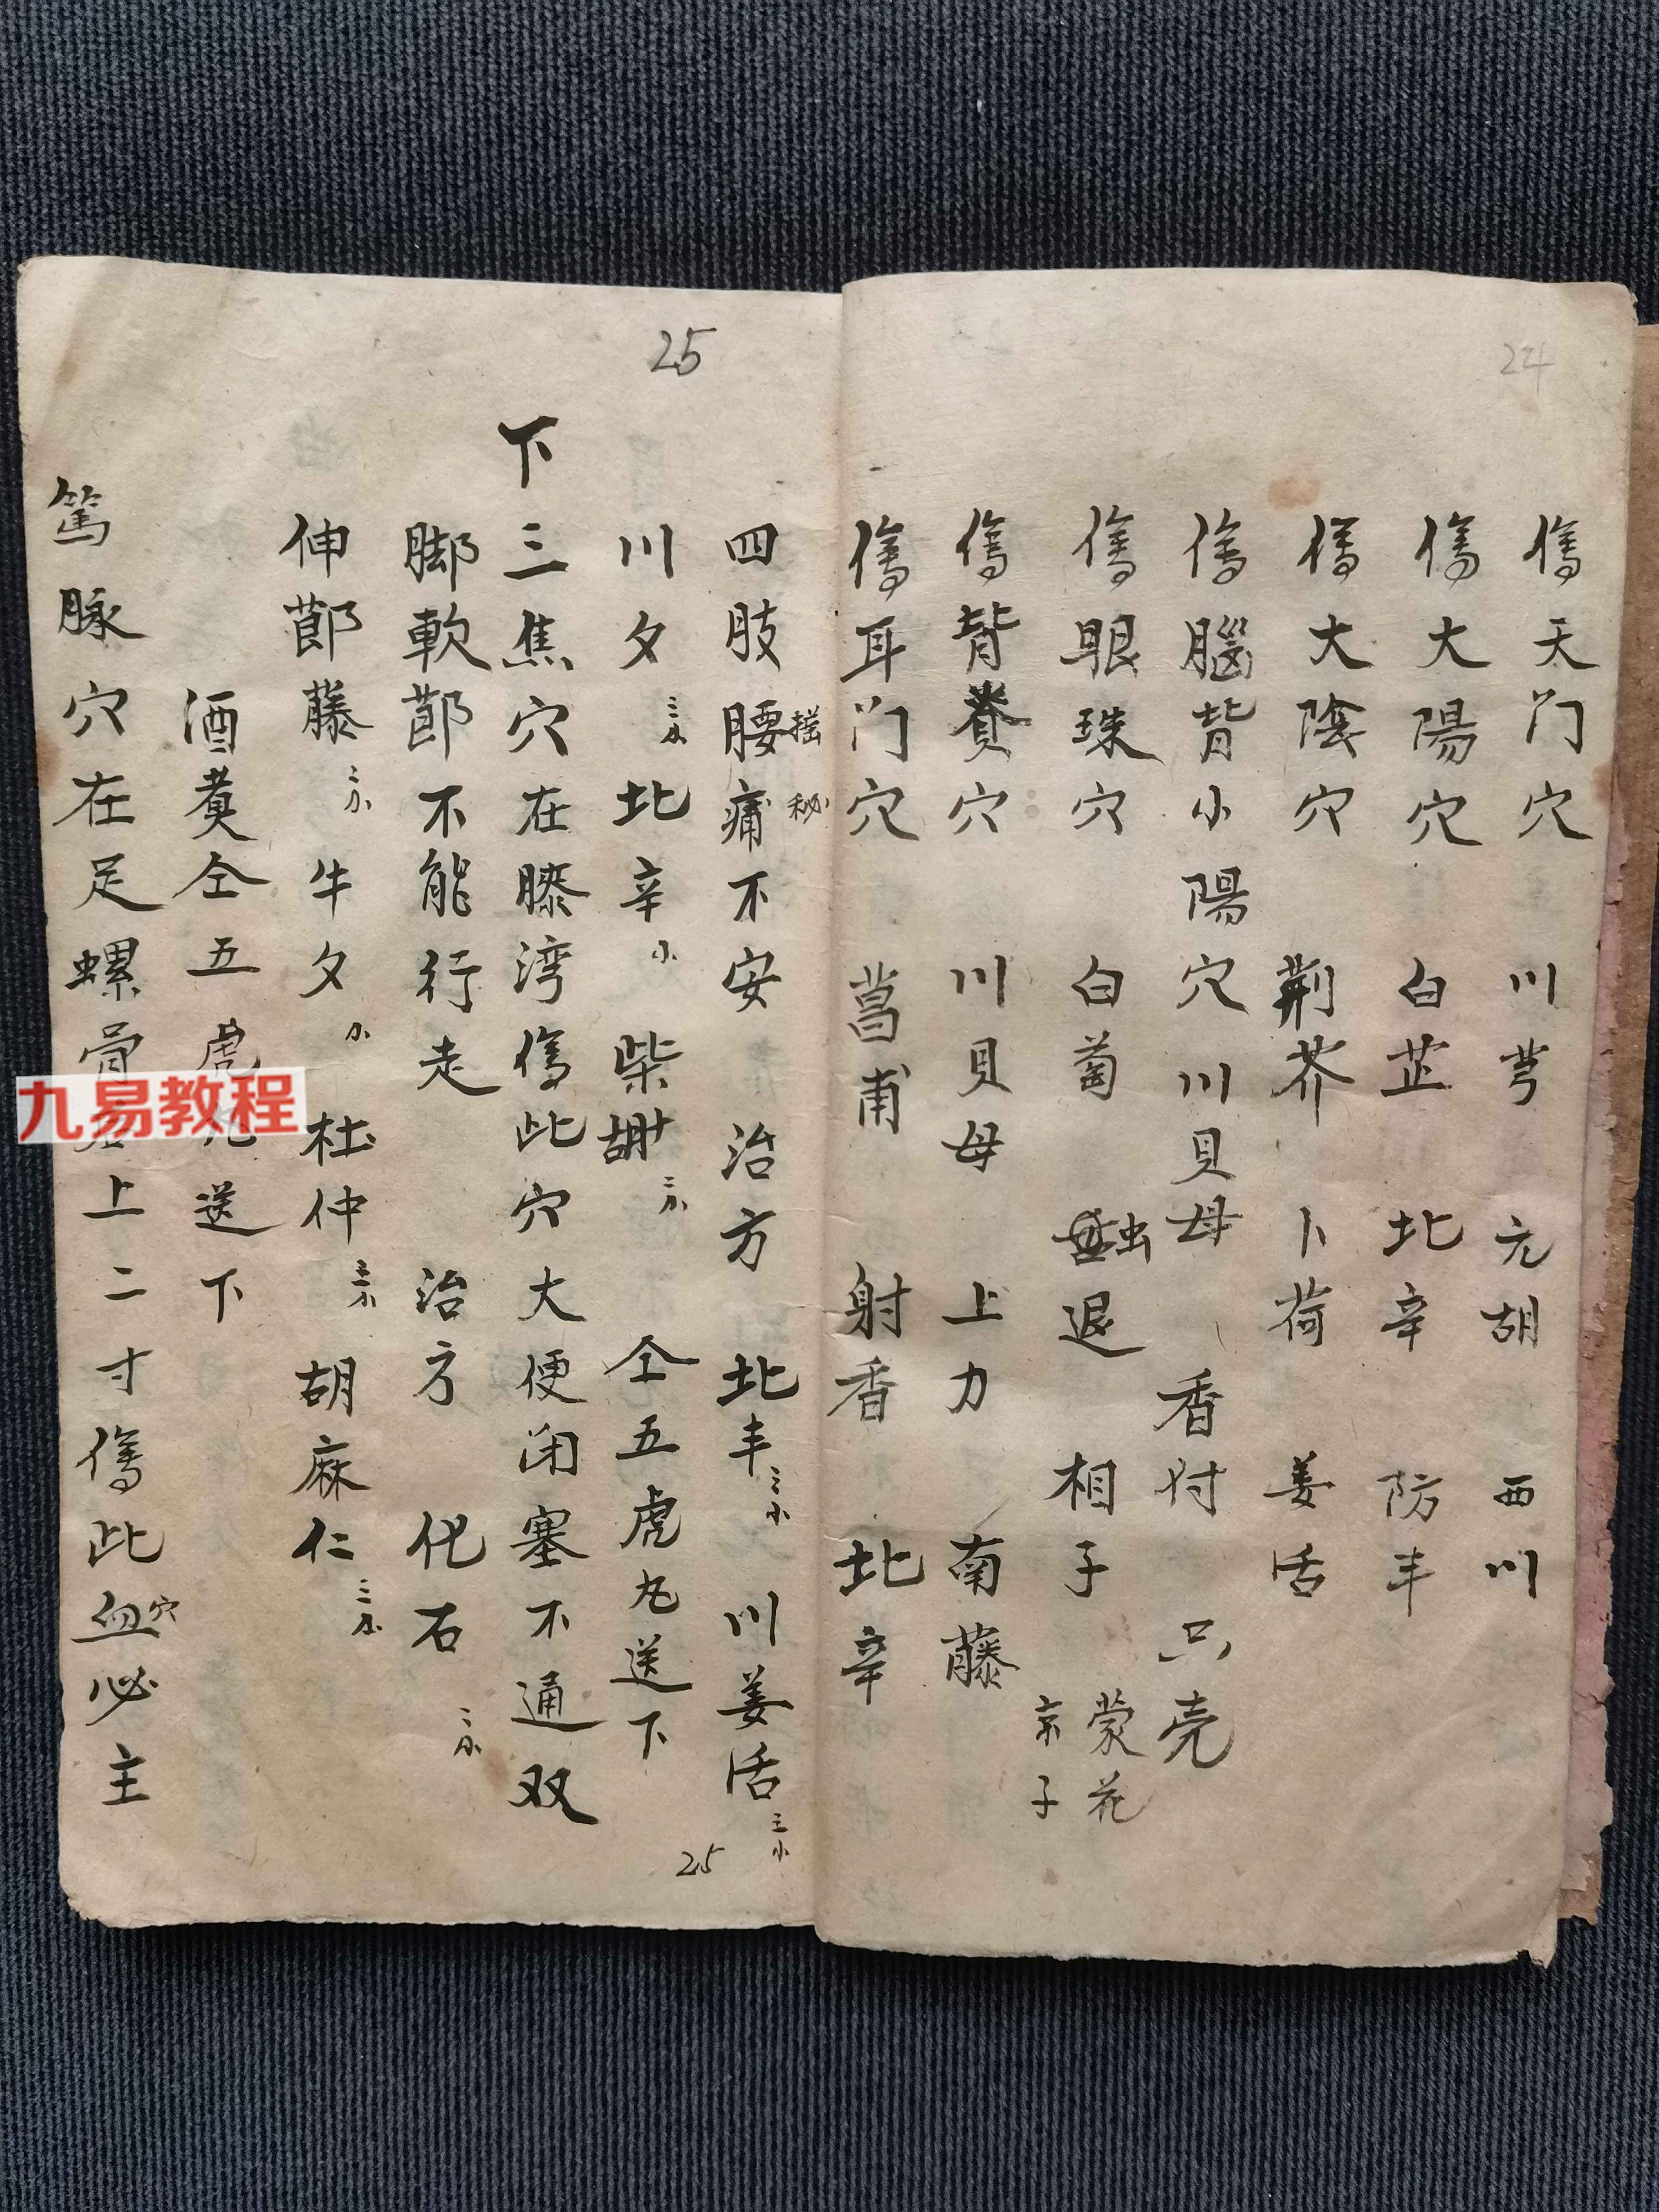 24
傷天门穴 川芎 元胡 西川
傷大陽穴 白芷 北辛 防丰
傷大陰穴 荆芥 卜荷 姜活
傷腦背小陽穴 川貝母 香付 只壳
傷眼珠穴 白萄 退 相子 蒙花 京子
傷背穴 川貝母 上力 南藤
傷耳门穴 菖甫 射香 北辛
25
四肢腰痛不安 治方 北丰三小 川姜活三小
摇秘
川夕 北辛小 柴胡二小 仝五虎丸送下
下三焦穴在膝湾傷此穴大便闭塞不通双
脚軟莭不能行走 治方 化石二小
伸莭藤二小 牛夕小 杜仲三小 胡麻仁三小
酒煑仝五虎丸送下
篤脉穴在足螺骨上二寸傷此血穴必主
25
九易教程